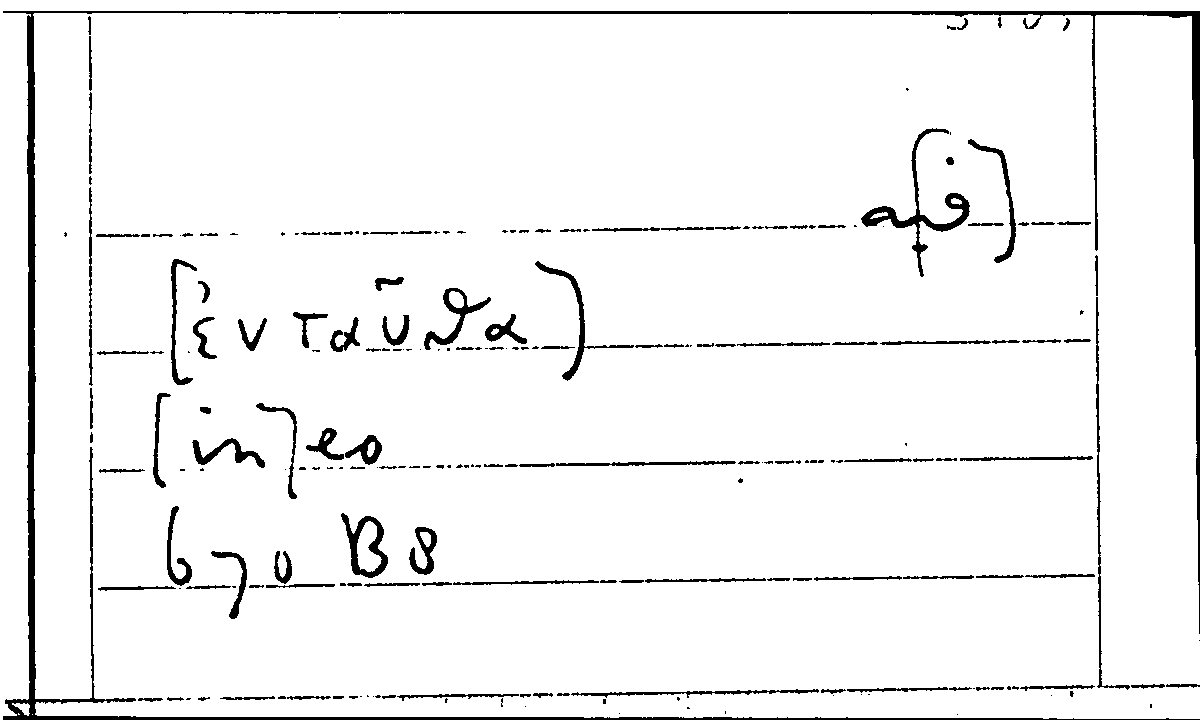 [ἐνταῦθα]
[in] eo
670 B8